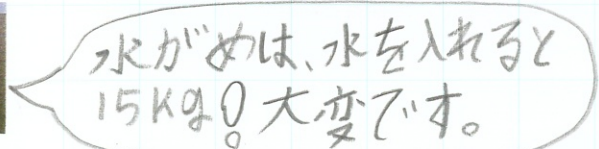 水がめは、水を入れると
15Kg!大変です。